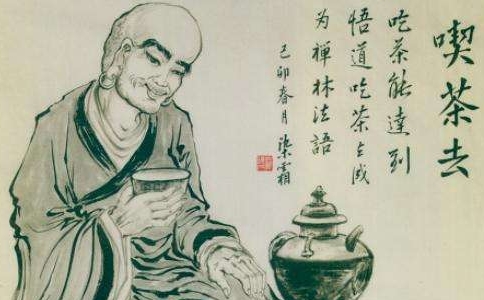 喫茶去
吃茶能達到
悟道吃茶去成
为禅林法語
己卯春月染霜